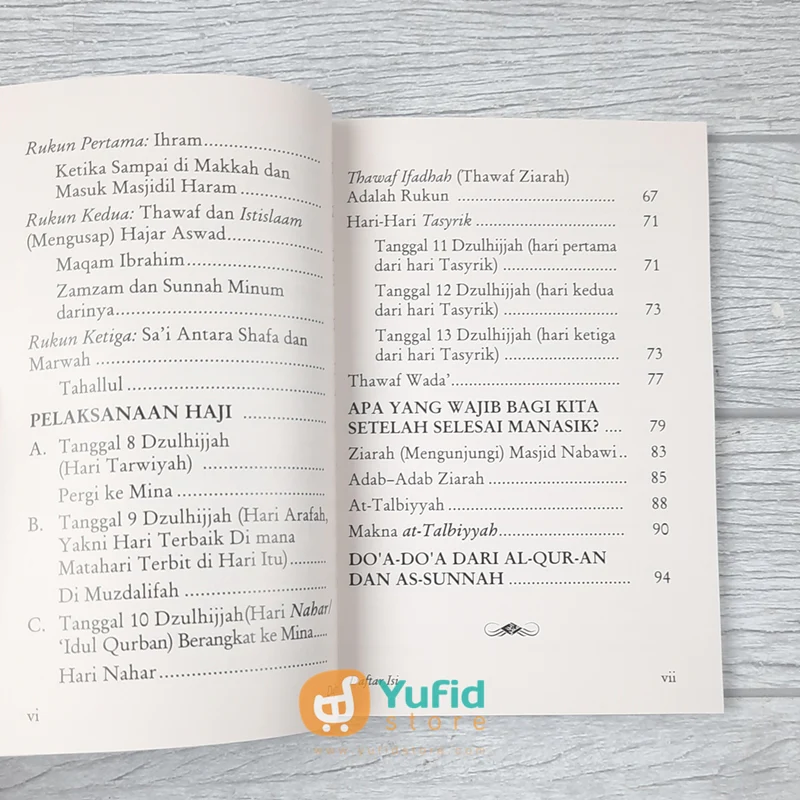 Rukun Pertama: Ihram
Ketika Sampai di Makkah dan
Masuk Masjidil Haram
Rukun Kedua: Thawaf dan Istislaam
(Mengusap) Hajar Aswad
Maqam Ibrahim
Zamzam dan Sunnah Minum
darinya
Rukun Ketiga: Sa'i Antara Shafa dan
Marwah
Tahallul
PELAKSANAAN HAJI
A. Tanggal 8 Dzulhijjah
(Hari Tarwiyah)
Pergi ke Mina
B. Tanggal 9 Dzulhijjah (Hari Arafah,
Yakni Hari Terbaik Di mana
Matahari Terbit di Hari Itu)
Di Muzdalifah
C. Tanggal 10 Dzulhijjah(Hari Nahar/
'Idul Qurban) Berangkat ke Mina
Hari Nahar
vi
Thawaf Ifadhah (Thawaf Ziarah)
Adalah Rukun 67
Hari-Hari Tasyrik 71
Tanggal 11 Dzulhijjah (hari pertama
dari hari Tasyrik) 71
Tanggal 12 Dzulhijjah (hari kedua
dari hari Tasyrik) 73
Tanggal 13 Dzulhijjah (hari ketiga
dari hari Tasyrik) 73
Thawaf Wada' 77
APA YANG WAJIB BAGI KITA
SETELAH SELESAI MANASIK? 79
Ziarah (Mengunjungi) Masjid Nabawi 83
Adab–Adab Ziarah 85
At-Talbiyyah 88
Makna at-Talbiyyah 90
DO'A-DO'A DARI AL-QUR-AN
DAN AS-SUNNAH 94
Isi vii
Yufid
store